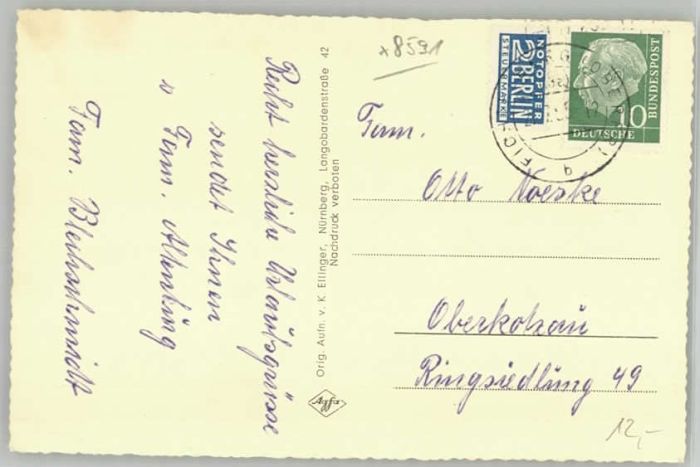 Recht herzliche Urlaubsgrüsse
sendet Ihnen
Fam. Altenburg
Fam. Bleischmidt
Orig. Aufn. v. K. Ettinger, Nürnberg, Langobardenstraße 42
Nachdruck verboten
Agfa
x8591
NOTOPFER
2 BERLIN
STEUERMARKE
10
DEUTSCHE
BUNDESPOST
Fam.
Otto Noeske
Oberkotzau
Ringsiedlung 49
12,-